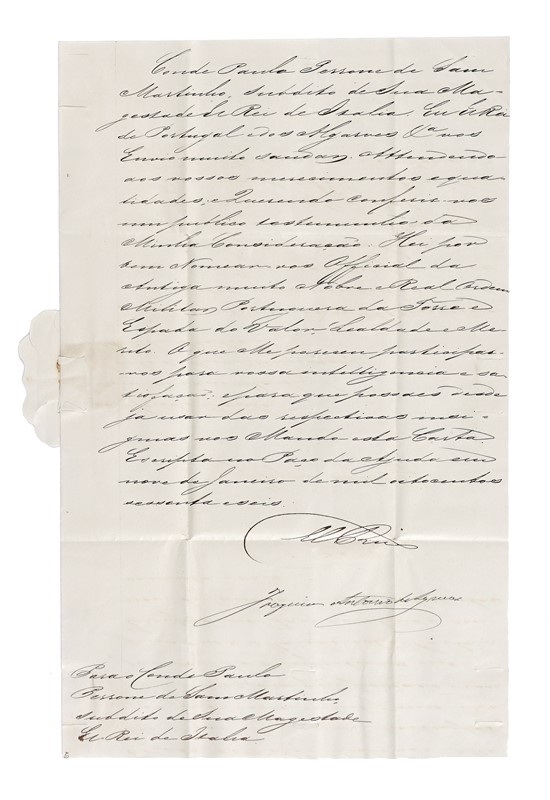 Conde Paulo Perrone de Sam
Martinho, subdito de Sua Ma-
gestade El Rei de Italia. Eu El Rei
de Portugal e dos Algarves &ª vos
Envio muito saudar. Attendendo
aos vossos merecimentos e qua-
lidades, e Querendo conferir-vos
um publico testemunho da
Minha Consideração: Hei por
bem Nomear vos Official da
Antiga muito Nobre e Real Ordem
Militar Portugueza da Torre e
Espada do Valor, Lealdade e Me-
rito. O que Me pareceu participar-
vos para vossa intelligencia e sa-
tisfação, e para que possaes desde
já usar das respectivas insi-
gnias vos Mando esta Carta.
Escripta no Paço da Ajuda em
nove de Janeiro de mil oitocentos
sessenta e seis.
El Rei
Joaquim Antonio de Aguiar
Para o Conde Paulo
Perrone de Sam Martinho,
subdito de Sua Magestade
El Rei de Italia.